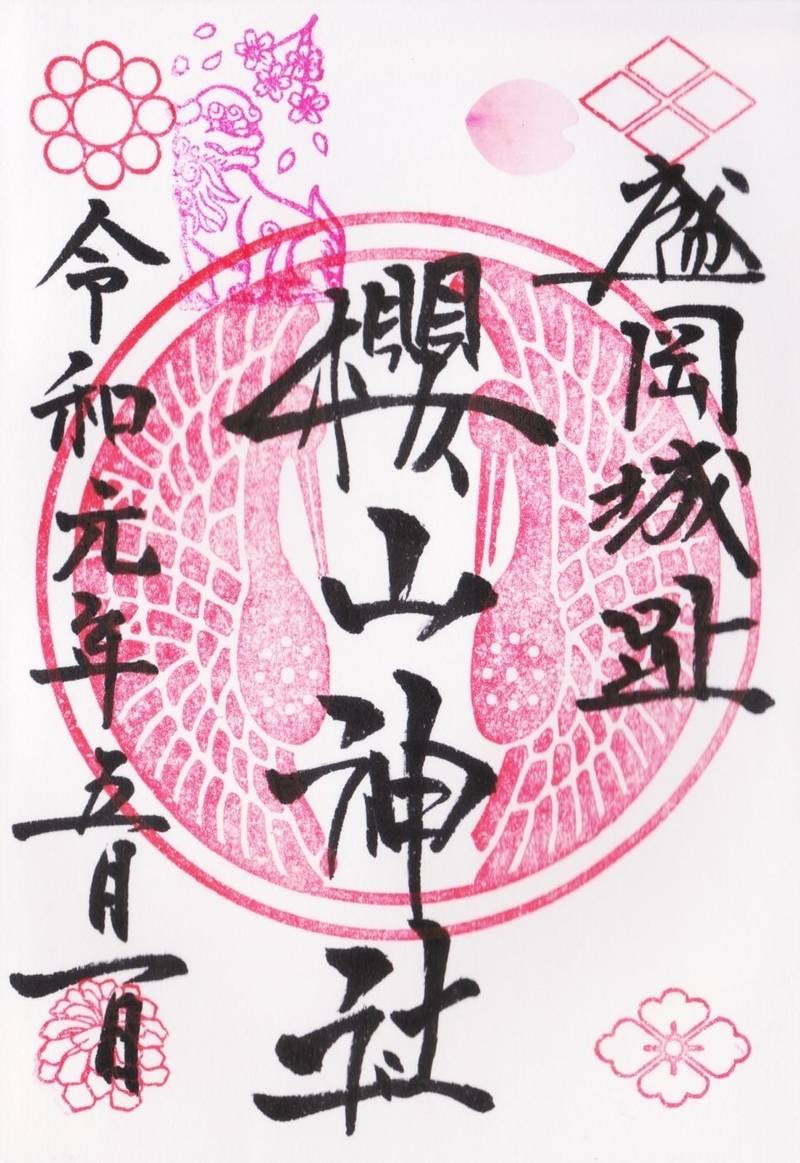 盛岡城趾
櫻山神社
令和元年五月一日